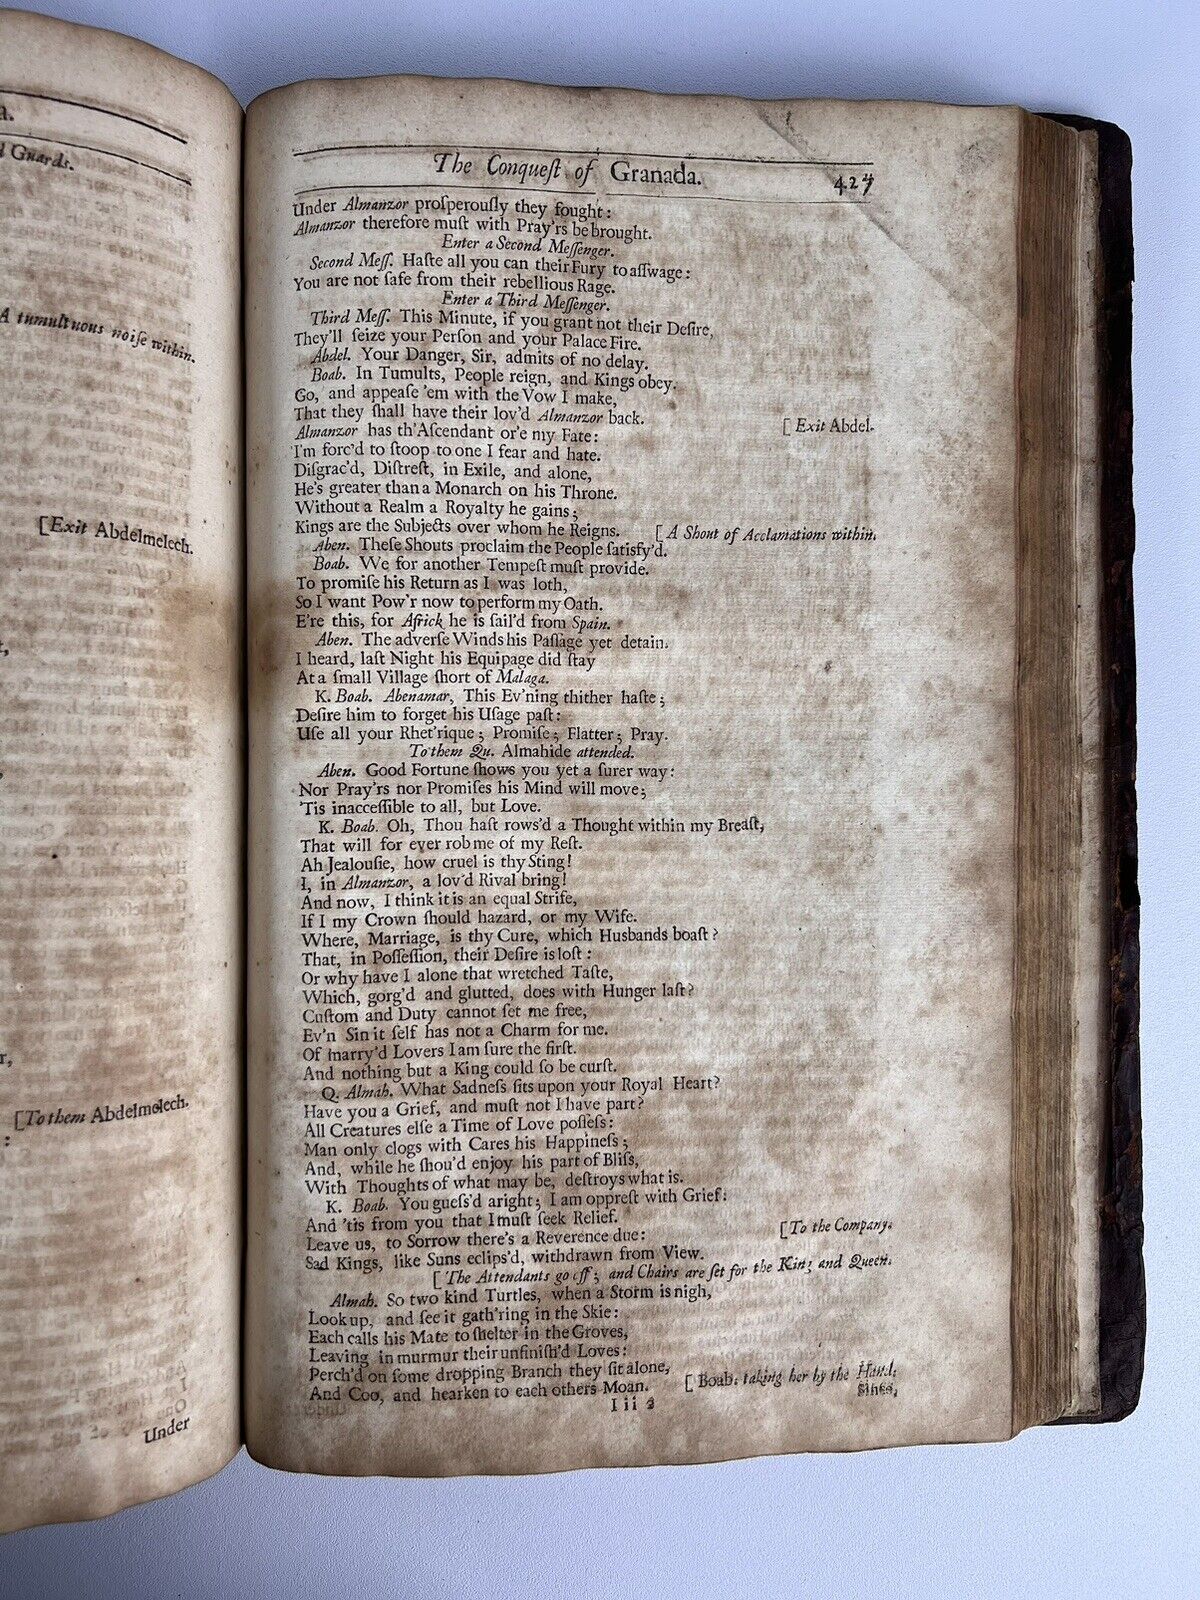 a.
d Guards.
A tumultuous noiſe within.
[Exit Abdelmelech.
[To them Abdelmelech.
Under
The Conqueſt of Granada.
427
Under Almanzor proſperouſly they fought:
Almanzor therefore muſt with Pray'rs be brought.
Enter a Second Meſſenger.
Second Meſſ. Haſte all you can their Fury to aſſwage:
You are not ſafe from their rebellious Rage.
Enter a Third Meſſenger.
Third Meſſ. This Minute, if you grant not their Deſire,
They'll ſeize your Perſon and your Palace Fire.
Abdel. Your Danger, Sir, admits of no delay.
Boab. In Tumults, People reign, and Kings obey.
Go, and appeaſe 'em with the Vow I make,
That they ſhall have their lov'd Almanzor back. [Exit Abdel.
Almanzor has th'Aſcendant o're my Fate:
I'm forc'd to ſtoop to one I fear and hate.
Diſgrac'd, Diſtreſt, in Exile, and alone,
He's greater than a Monarch on his Throne.
Without a Realm a Royalty he gains;
Kings are the Subjects over whom he Reigns. [A Shout of Acclamations within.
Aben. Theſe Shouts proclaim the People ſatisfy'd.
Boab. We for another Tempeſt muſt provide.
To promiſe his Return as I was loth,
So I want Pow'r now to perform my Oath.
E're this, for Africk he is ſail'd from Spain.
Aben. The adverſe Winds his Paſſage yet detain.
I heard, laſt Night his Equipage did ſtay
At a ſmall Village ſhort of Malaga.
K. Boab. Abenamar, This Ev'ning thither haſte;
Deſire him to forget his Uſage paſt:
Uſe all your Rhet'rique; Promiſe; Flatter; Pray.
To them Qu. Almahide attended.
Aben. Good Fortune ſhows you yet a ſurer way:
Nor Pray'rs nor Promiſes his Mind will move;
'Tis inacceſſible to all, but Love.
K. Boab. Oh, Thou haſt rows'd a Thought within my Breaſt,
That will for ever rob me of my Reſt.
Ah Jealouſie, how cruel is thy Sting!
I, in Almanzor, a lov'd Rival bring!
And now, I think it is an equal Strife,
If I my Crown ſhould hazard, or my Wife.
Where, Marriage, is thy Cure, which Husbands boaſt?
That, in Poſſeſſion, their Deſire is loſt:
Or why have I alone that wretched Taſte,
Which, gorg'd and glutted, does with Hunger laſt?
Cuſtom and Duty cannot ſet me free,
Ev'n Sin it ſelf has not a Charm for me.
Of marry'd Lovers I am ſure the firſt.
And nothing but a King could ſo be curſt.
Q. Almah. What Sadneſs ſits upon your Royal Heart?
Have you a Grief, and muſt not I have part?
All Creatures elſe a Time of Love poſſeſs:
Man only clogs with Cares his Happineſs;
And, while he ſhou'd enjoy his part of Bliſs,
With Thoughts of what may be, deſtroys what is.
K. Boab. You gueſs'd aright; I am oppreſt with Grief:
And 'tis from you that I muſt ſeek Relief. [To the Company.
Leave us, to Sorrow there's a Reverence due:
Sad Kings, like Suns eclips'd, withdrawn from View.
[The Attendants go off; and Chairs are ſet for the King and Queen.
Almah. So two kind Turtles, when a Storm is nigh,
Look up, and ſee it gath'ring in the Skie:
Each calls his Mate to ſhelter in the Groves,
Leaving in murmur their unfiniſh'd Loves:
Perch'd on ſome dropping Branch they ſit alone,
And Coo, and hearken to each others Moan. [Boab. taking her by the Hand.
Iii 2 Since,